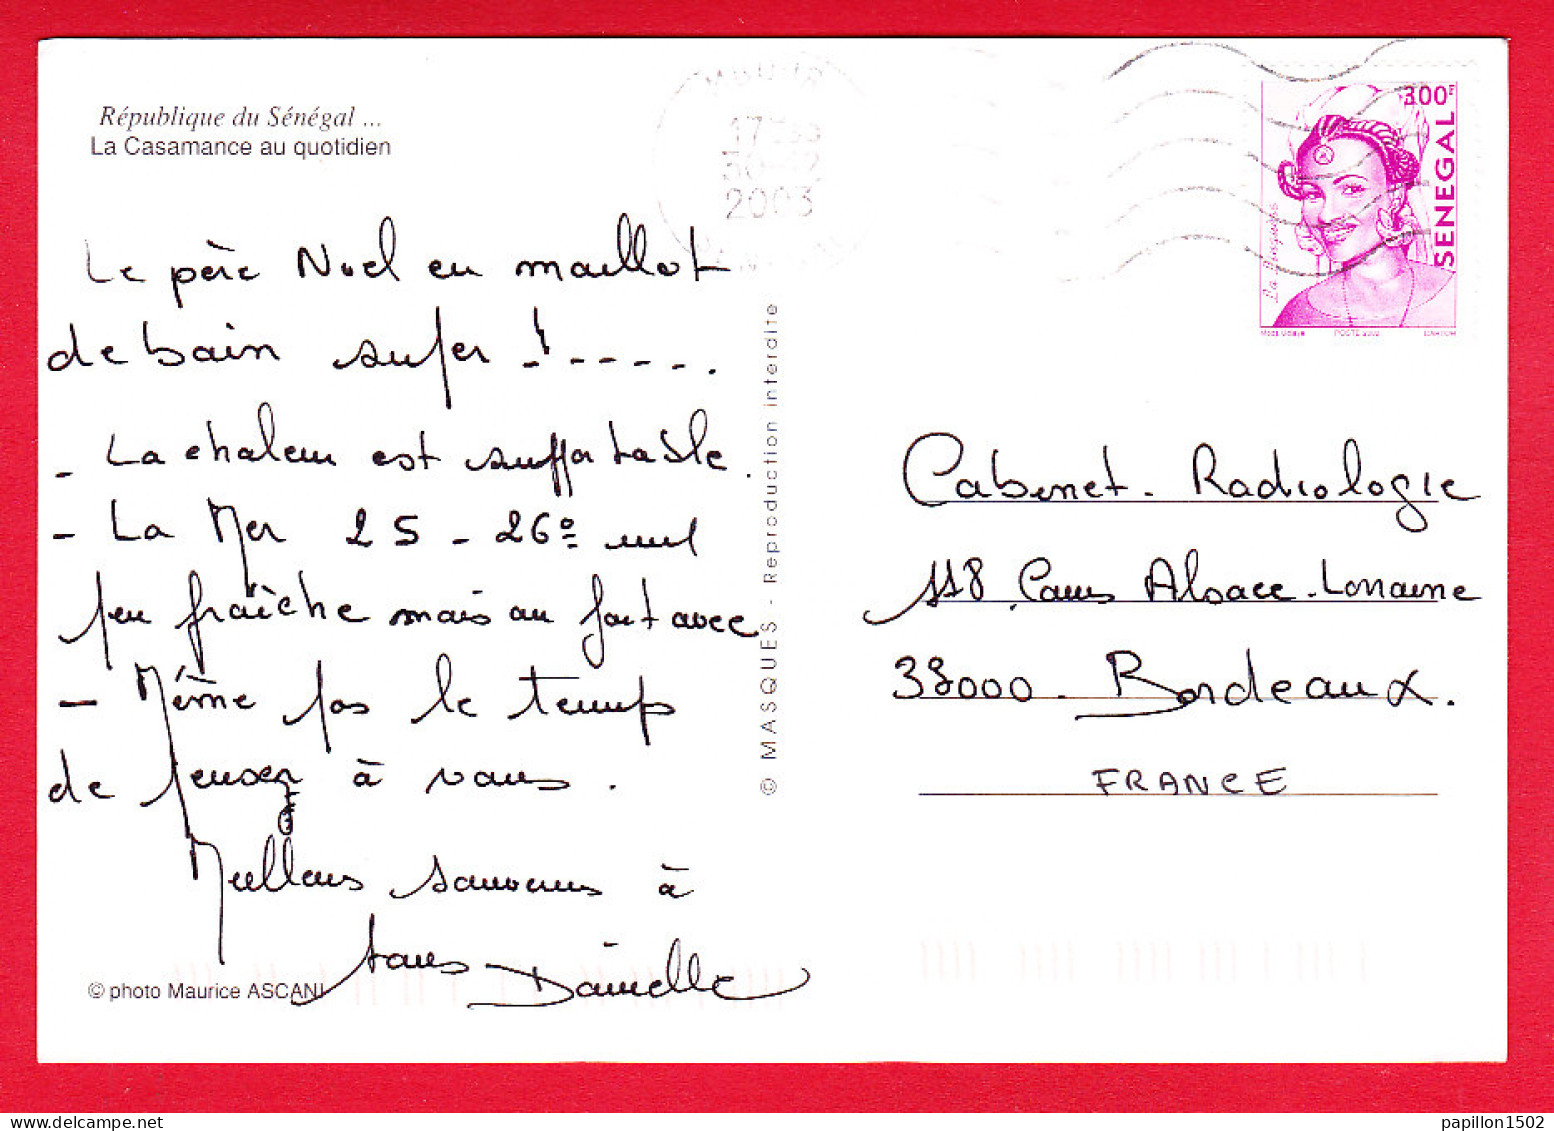 République du Sénégal ...
La Casamance au quotidien
Le père Noel en maillot
de bain super ! - - - - .
- La chaleur est supportable.
- La Mer 25 - 26°
peu fraîche mais on fait avec
- Même pas le temps
de penser à vous.
Meilleurs souvenirs à
tous Danielle
© photo Maurice ASCANI
© MASQUES - Reproduction interdite
2003
300F
SENEGAL
POSTE 2002
Cabinet. Radiologie
118 Cours Alsace-Lorraine
33000. Bordeaux.
FRANCE
papillon1502